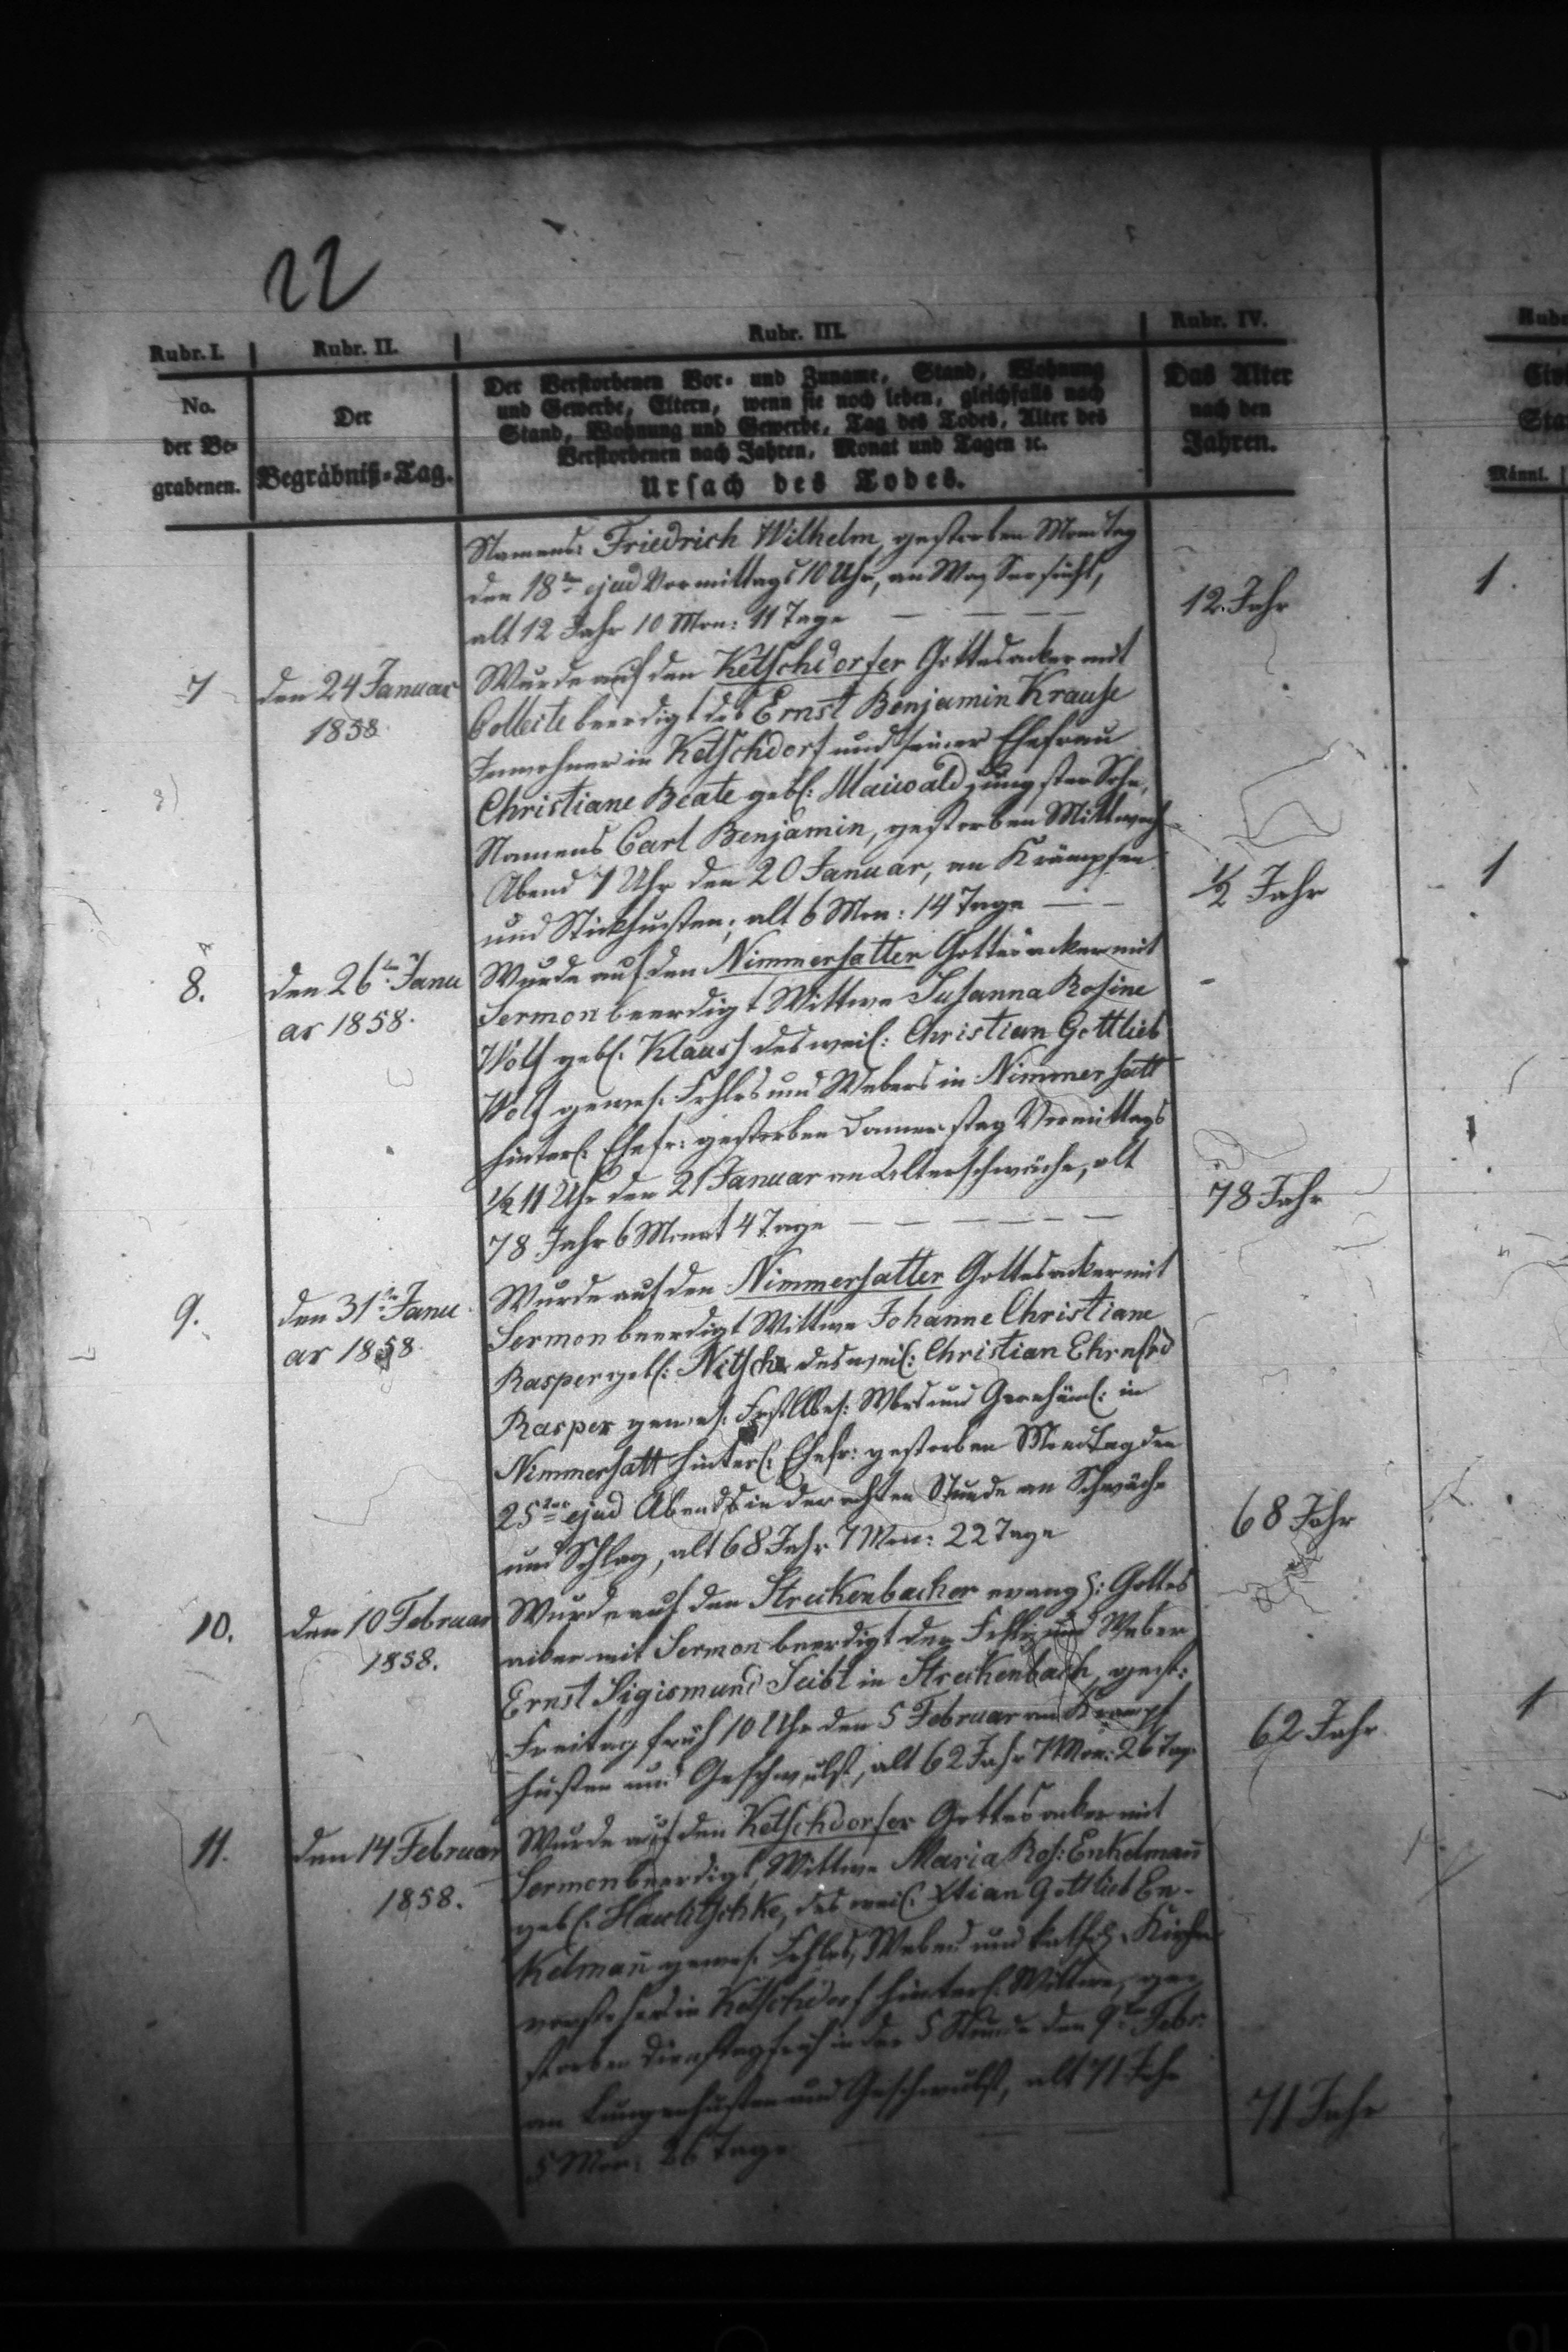 22
Rubr. I. Rubr. II. Rubr. III. Rubr. IV.
No. der Be= grabenen.
Der Begräbniß=Tag.
Der Verstorbenen Vor= und Zuname, Stand, Wohnung
und Gewerbe, Eltern, wenn sie noch leben, gleichfalls nach
Stand, Wohnung und Gewerbe, Tag des Todes, Alter des
Verstorbenen nach Jahren, Monat und Tagen ꝛc.
Ursach des Todes.
Das Alter
nach den
Jahren.
Männl.
Namens: Friedrich Wilhelm, gestorben Montag
den 18ten ejud Vormittags 10 Uhr, an
alt 12 Jahr 10 Mon: 11 Tage — — — —
12. Jahr
1.
7 den 24 Januar
1858.
Wurde auf den Ketschdorfer Gottesacker mit
Collecte beerdigt des Ernst Benjamin Krause
Inwohner in Ketschdorf und seiner Ehefrau
Christiane Beate gebl: Maiwald jüngster Sohn,
Namens Carl Benjamin, gestorben Mittwoch
Abend 7 Uhr den 20 Januar, an Krämpfen
und Stickhusten; alt 6 Mon: 14 Tage — —
½ Jahr
1
8. den 26ten Janu
ar 1858.
Wurde auf den Nimmersatter Gottesacker mit
Sermon beerdigt Wittwe Susanna Rosine
Wolf gebl. Klaus des weil: Christian Gottlieb
Wolf gewes. Frhlrs und Webers in Nimmersatt
hinterl: Ehefr: gestorben Donnerstag Vormittags
½ 11 Uhr den 21 Januar an Alterschwäche, alt
78 Jahr 6 Monat 4 Tage — — — — — —
78 Jahr
9. den 31ten Janu
ar 1858.
Wurde auf den Nimmersatter Gottesacker mit
Sermon beerdigt Wittwe Johanne Christiane
Rasper gebl: Nitsche des weil: Christian Ehrenfrd
Rasper gewes. und in
Nimmersatt hinterl: Ehefr: gestorben Montag den
25ten ejud Abends in der achten Stunde an Schwäche
und Schlag, alt 68 Jahr 7 Mon: 22 Tage
68 Jahr
10. den 10 Februar
1858.
Wurde auf den Streckenbacher evangl: Gottes
acker mit Sermon beerdigt der und Weber
Ernst Sigismund Seibt in Streckenbach, gest:
Freitag früh 10 Uhr den 5 Februar an Krampf
husten und Geschwulst, alt 62 Jahr 7 Mon: 26 Tag
62 Jahr
1
11. den 14 Februar
1858.
Wurde auf den Ketschdorfer Gottesacker mit
Sermon beerdigt, Wittwe Maria Ros: Enkelmañ
gebl. Hawlitschke, des weil. Xtian Gottlieb En-
kelmañ gewes. Frhlrs, Webers und Kirchen
vorstehers in Ketschdorf hinterl. Wittwe, ge
storben Dienstag früh in der 5 Stunde den 9ten Febr:
an Lungenhusten und Geschwulst, alt 71 Jahr
5 Mon: 26 Tage
71 Jahr